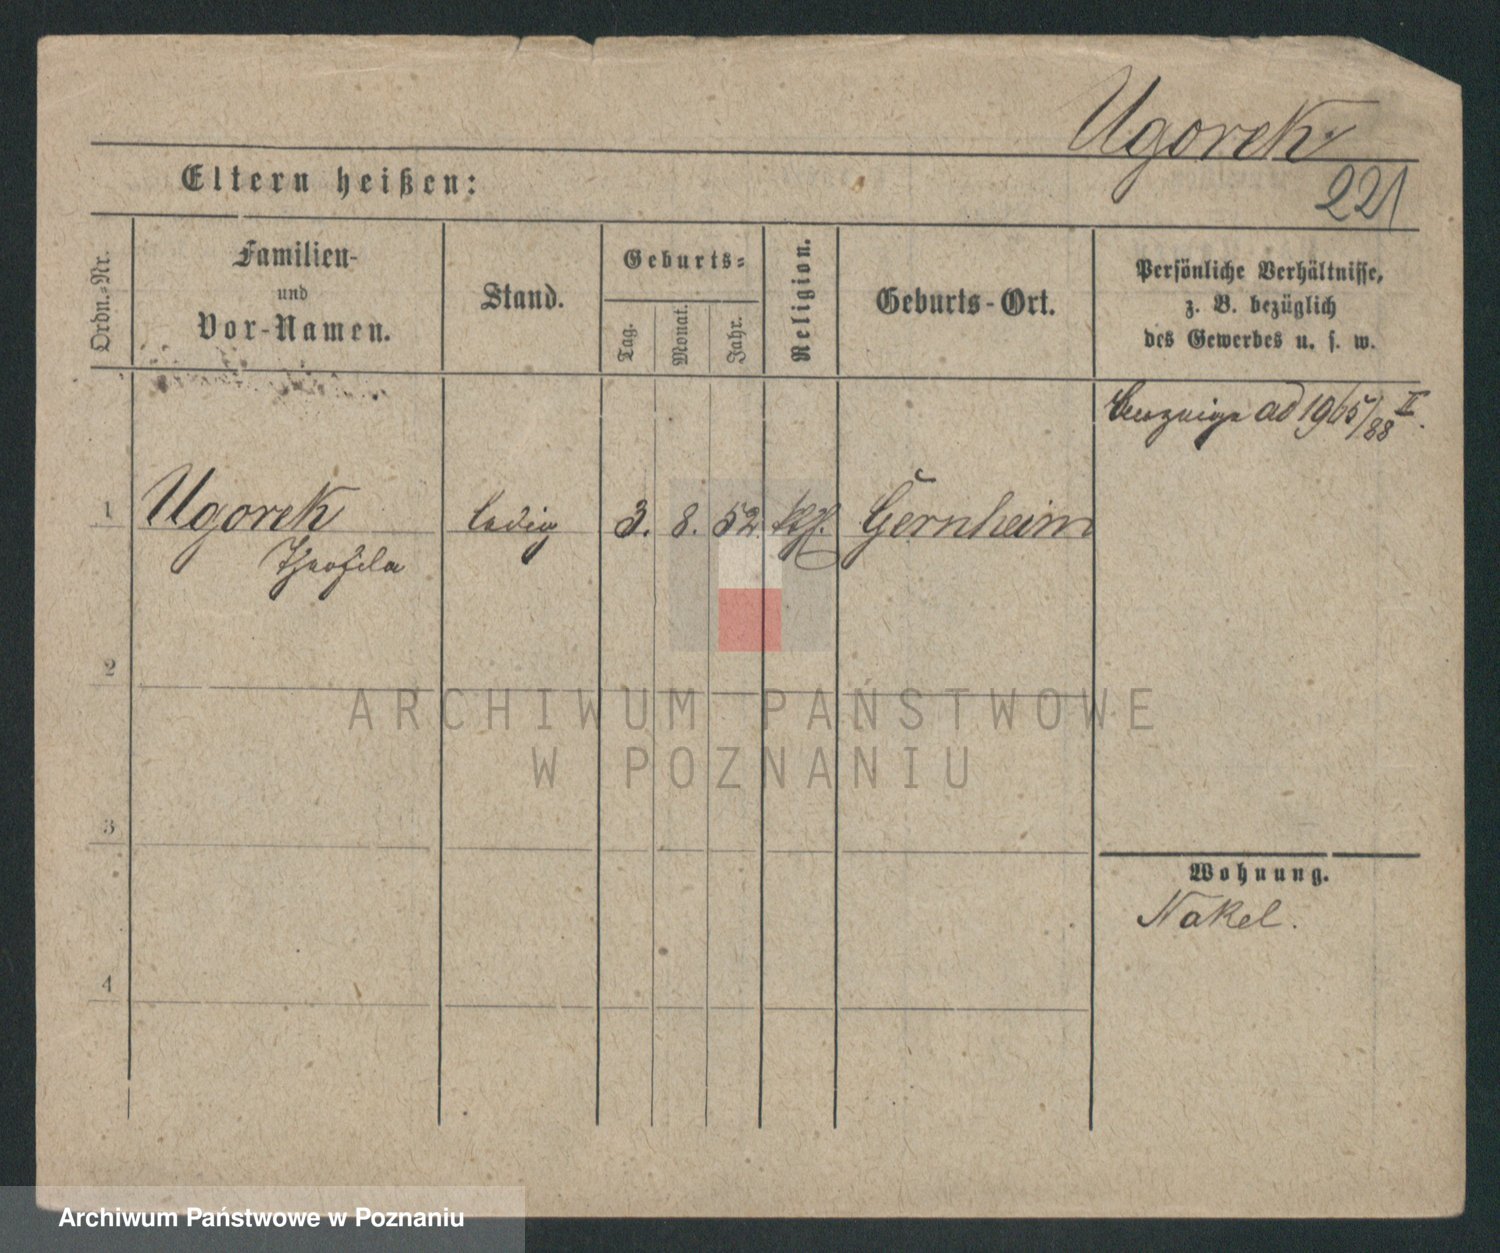 Ugorek
221
Eltern heißen:
Ordn.-Nr.
Familien-
und
Vor-Namen.
Stand.
Geburts-
Tag.
Monat.
Jahr.
Religion.
Geburts-Ort.
Persönliche Verhältnisse,
z. B. bezüglich
des Gewerbes u. s. w.
ad 1965/88 II.
1 Ugorek ledig 3. 8. 52. kth. Gernheim
Theofila
2
ARCHIWUM PAŃSTWOWE
W POZNANIU
3
Wohnung.
Nakel.
4
Archiwum Państwowe w Poznaniu